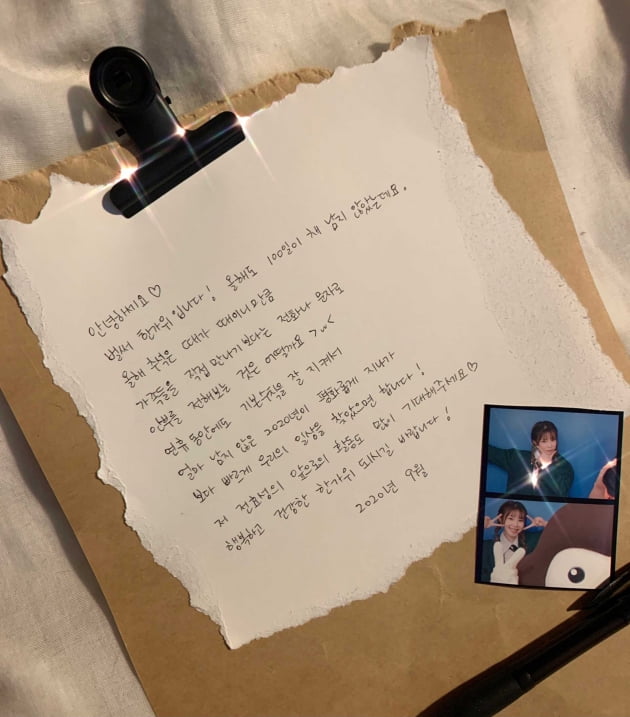 안녕하세요♡
벌써 한가위입니다! 올해도 100일이 채 남지 않았는데요.
올해 추석은 때가 때이니만큼
가족들을 직접 만나기 보다는 전화나 문자로
안부를 전해보는 것은 어떨까요 >_<
연휴 동안에도 기본수칙을 잘 지켜서
얼마 남지 않은 2020년이 평화롭게 지나가
보다 빠르게 우리의 일상을 찾았으면 합니다!
저 전효성의 앞으로의 활동도 많이 기대해주세요♡
행복하고 건강한 한가위 되시길 바랍니다!
2020년 9월